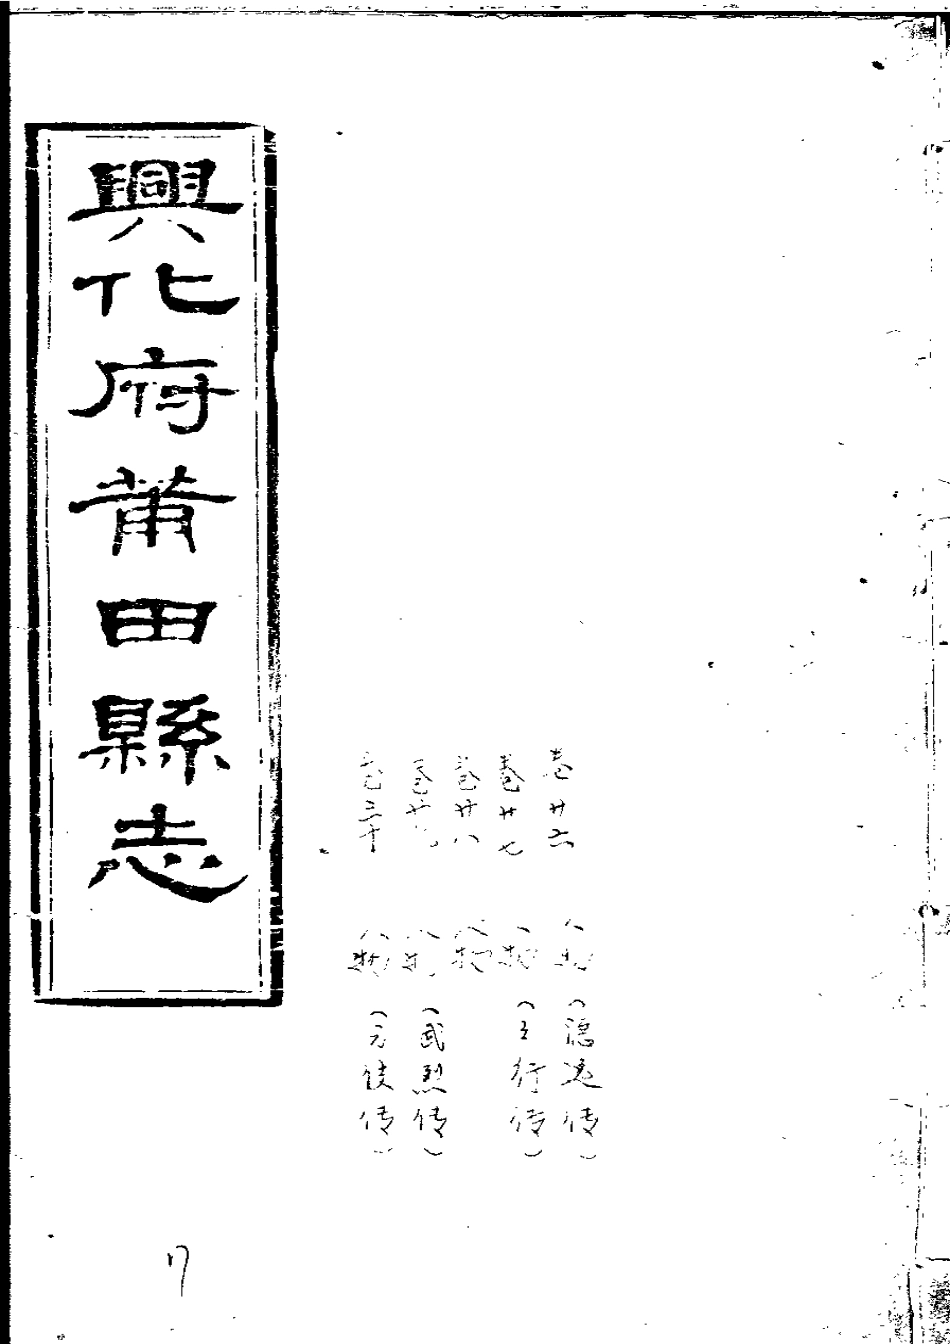 興化府莆田縣志
卷廿六 人物（隱逸传）
卷廿七 人物（行传）
卷廿八 人物
卷廿九 人物（武烈传）
卷三十 人物（传）
17